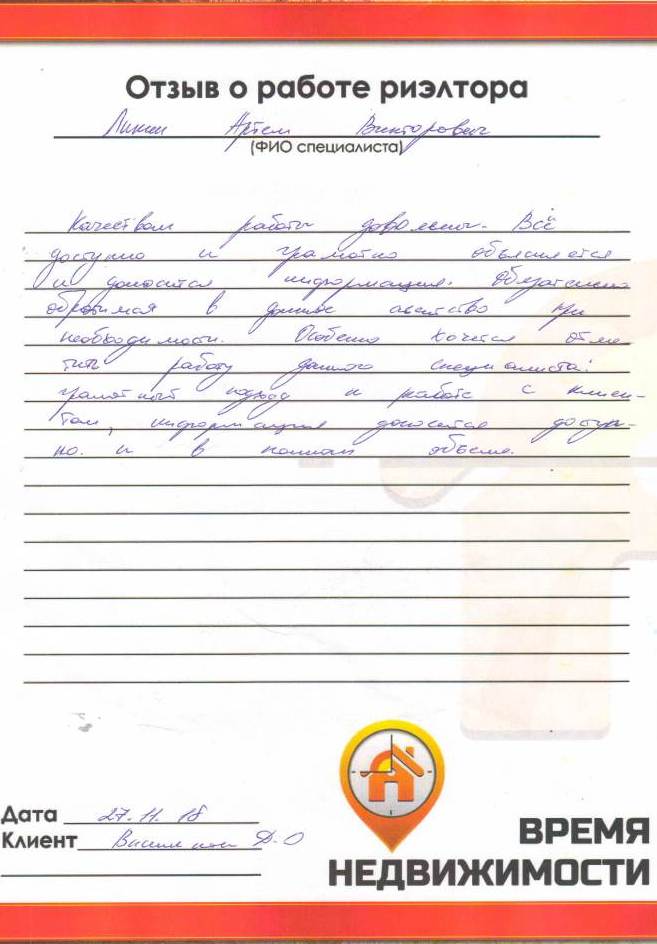 Отзыв о работе риэлтора
Артем Викторович
(ФИО специалиста)
Качеством работы довольны. Всё
доступно и грамотно объясняется
и доносится информация. Обязательно
обратимся в данное агентство при
необходимости. Особенно хочется отме-
тить работу данного специалиста:
грамотный подход к работе с клиен-
том, информация доносится доступ-
но и в полном объеме.
Дата 27.11.18
Клиент Д.О
ВРЕМЯ
НЕДВИЖИМОСТИ